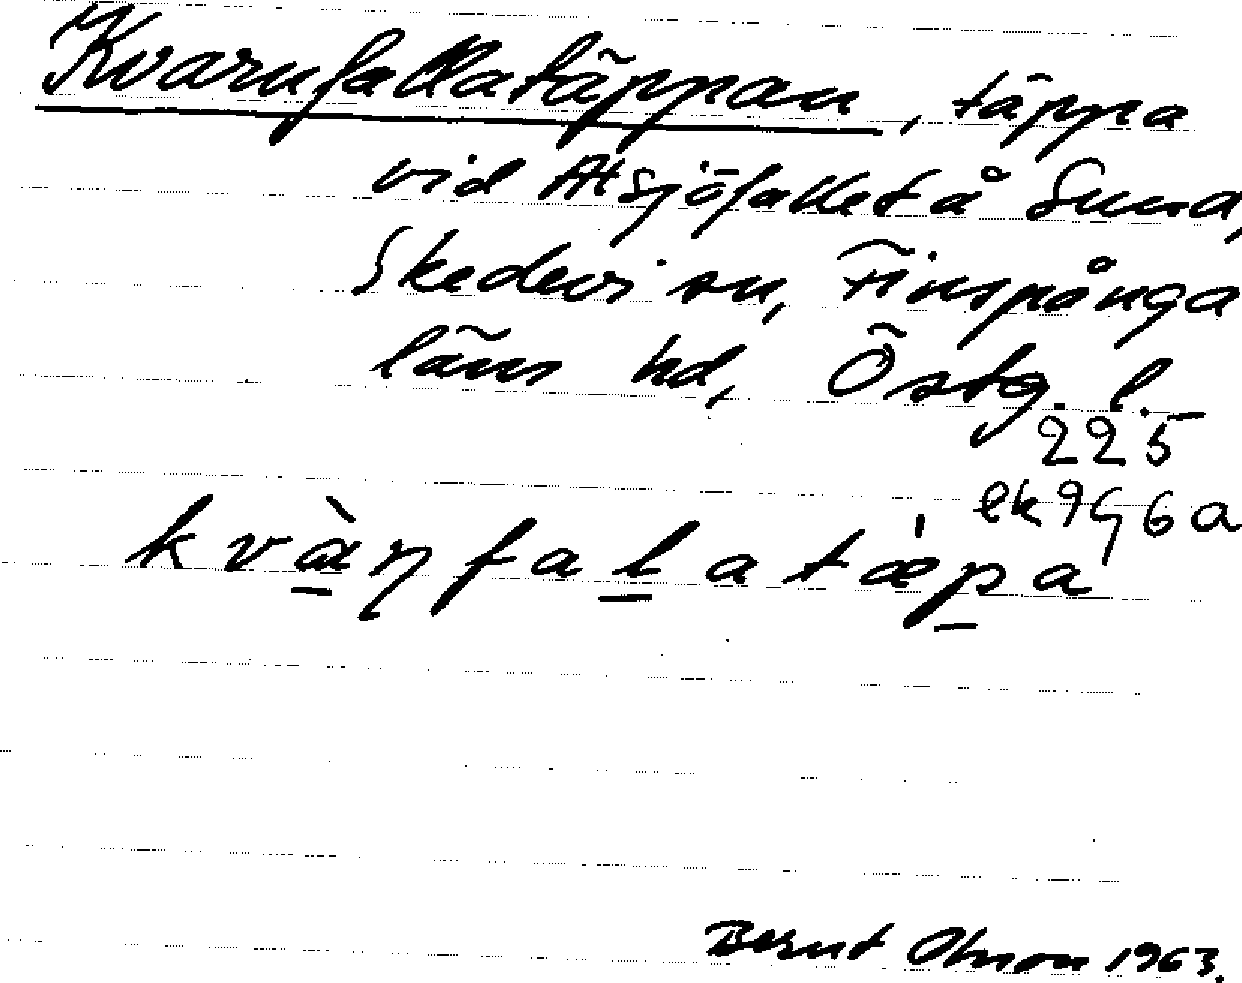 Kvarnfallatäppan, täppa
vid Atsjöfallet å Sund,
Skedevi sn, Finspånga
läns hd, Östg. l.
225
ek 9G6a
kvàṇfalatæ̍pa
Bernt Olsson 1963.